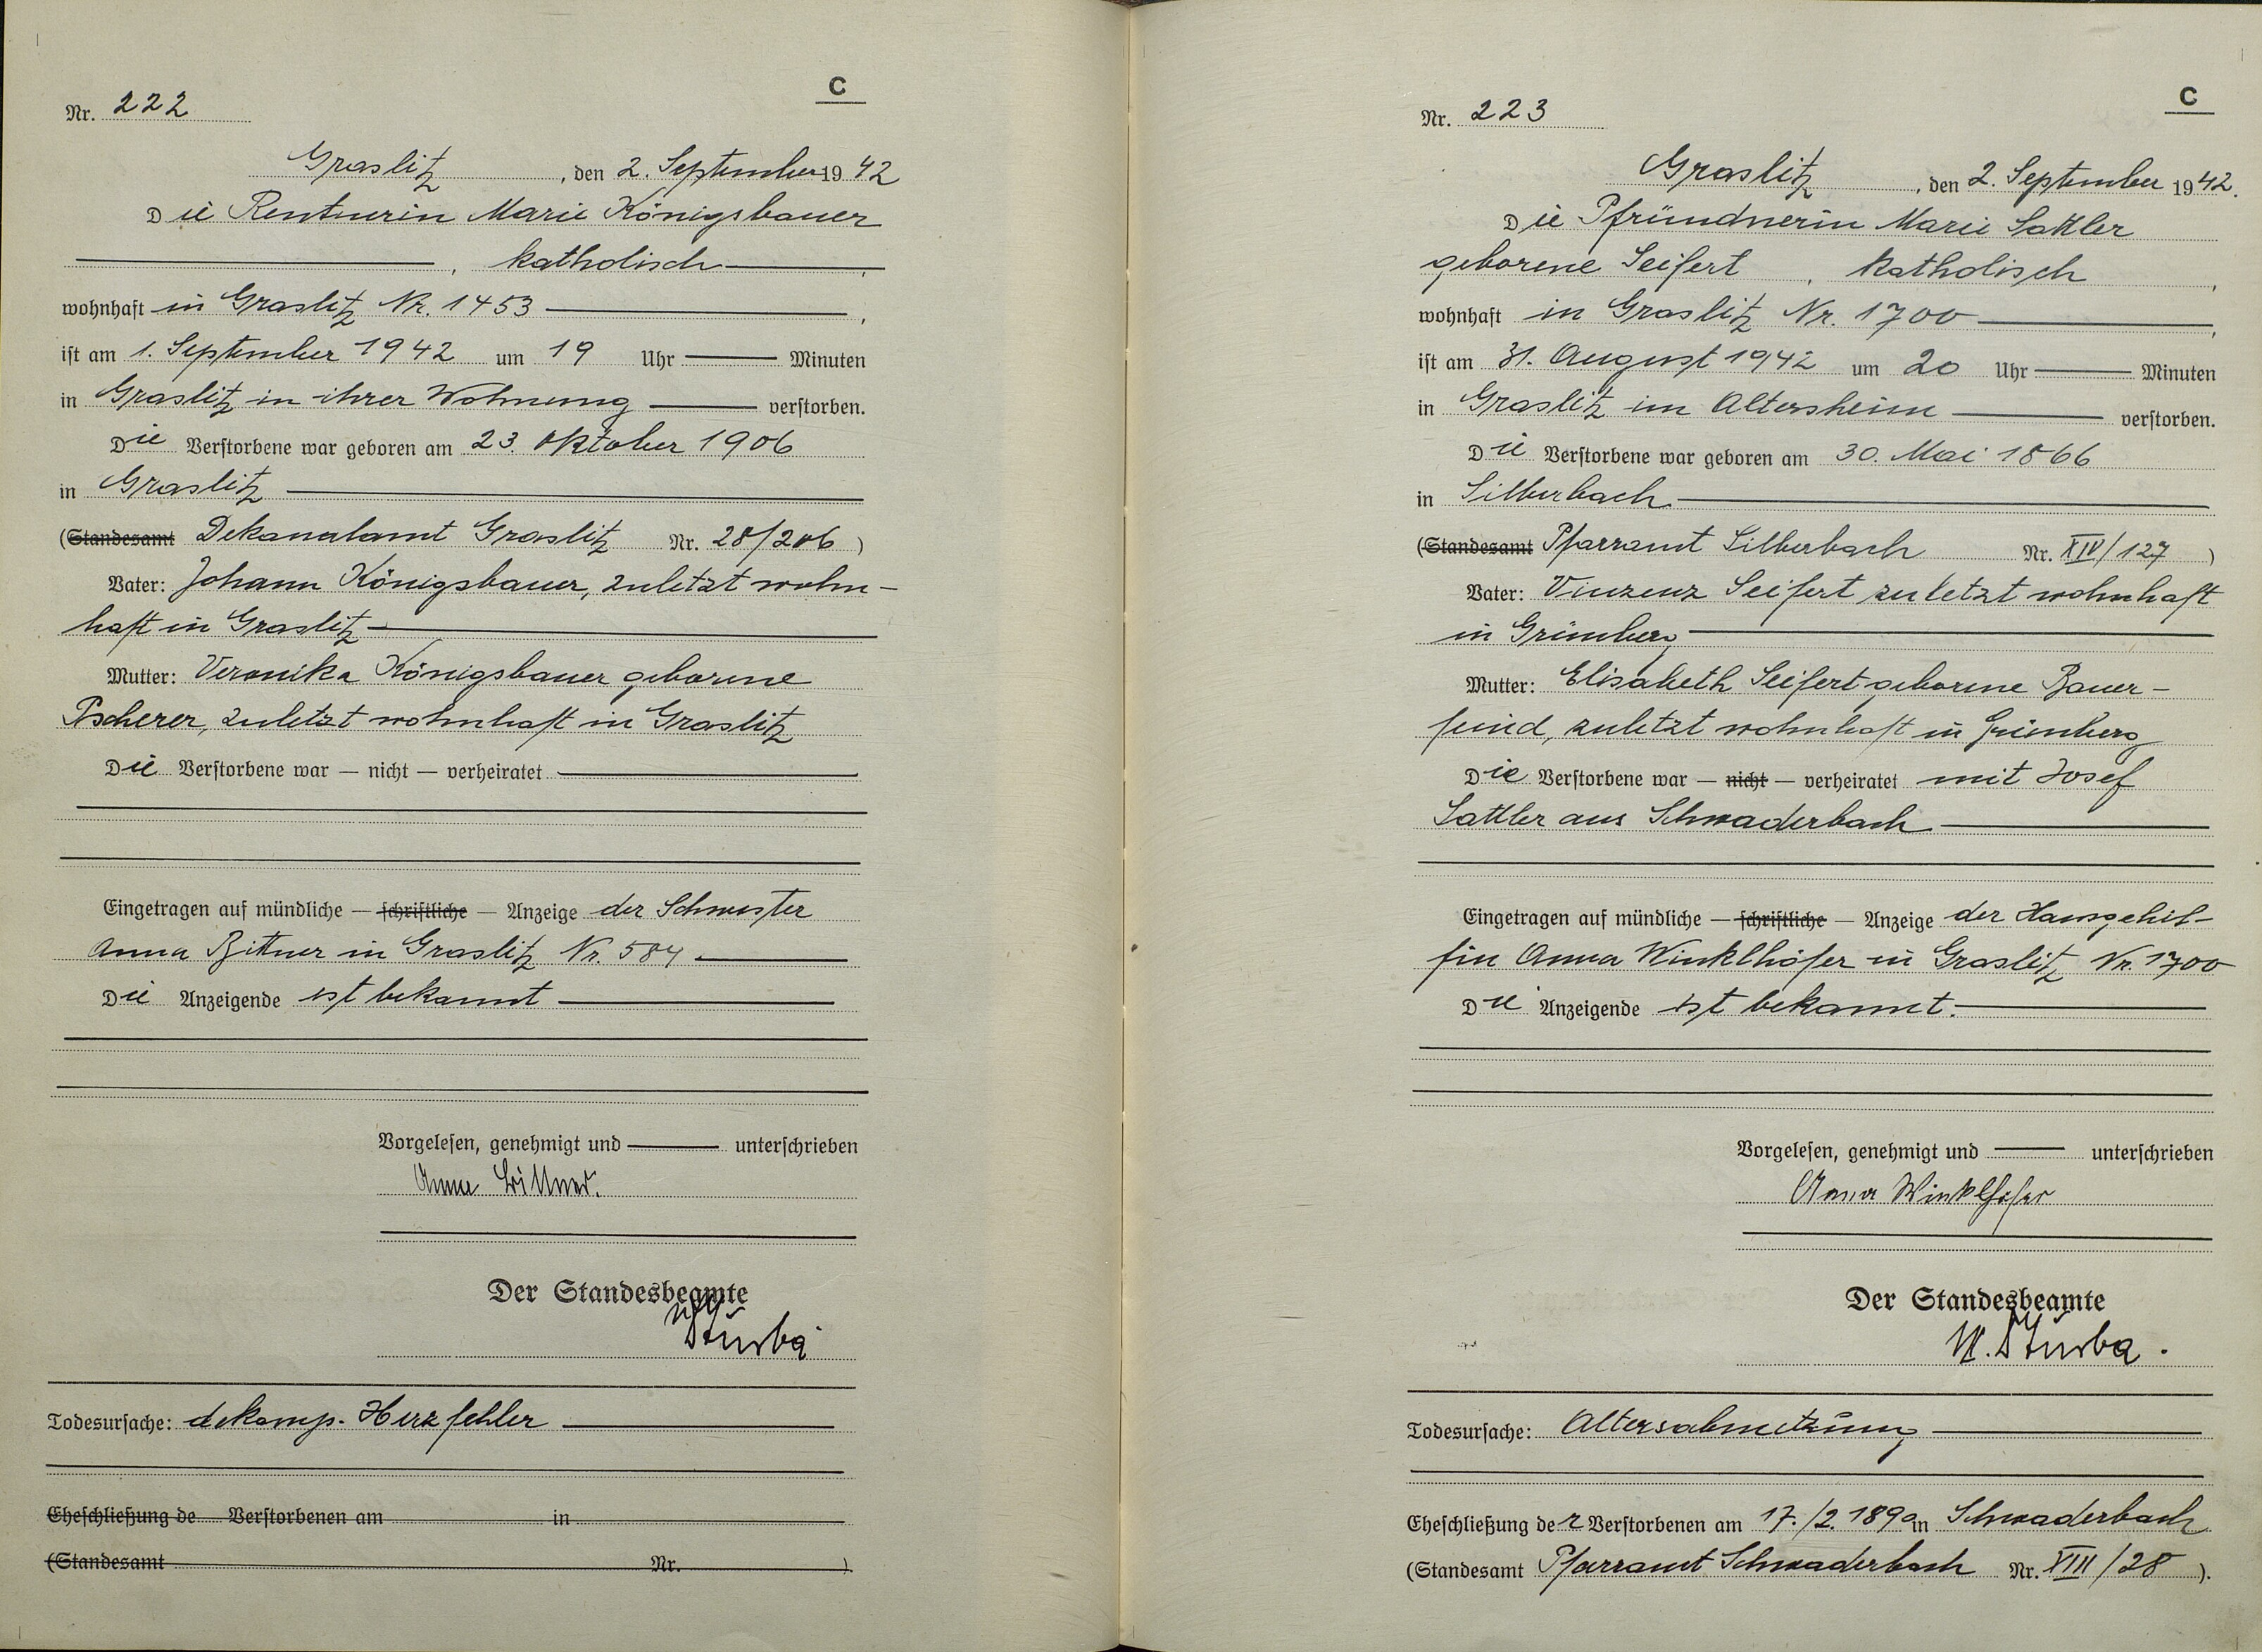 C
Nr. 222
Graslitz, den 2. September 1942
Die Rentnerin Marie Königsbauer
, katholisch ,
wohnhaft in Graslitz Nr. 1453 ,
ist am 1. September 1942 um 19 Uhr Minuten
in Graslitz in ihrer Wohnung verstorben.
Die Verstorbene war geboren am 23. Oktober 1906
in Graslitz
(Standesamt Dekanalamt Graslitz Nr. 28/206)
Vater: Johann Königsbauer, zuletzt wohn-
haft in Graslitz
Mutter: Veronika Königsbauer geborene
Pscherer, zuletzt wohnhaft in Graslitz
Die Verstorbene war — nicht — verheiratet
Eingetragen auf mündliche — schriftliche — Anzeige der Schwester
Anna Bittner in Graslitz Nr. 584
Die Anzeigende ist bekannt
Vorgelesen, genehmigt und unterschrieben
Anna Bittner.
Der Standesbeamte
Sturba
Todesursache: dekomp. Herzfehler
Eheschließung de Verstorbenen am in
(Standesamt Nr. )
C
Nr. 223
Graslitz, den 2. September 1942.
Die Pfründnerin Marie Sattler
geborene Seifert, katholisch ,
wohnhaft in Graslitz Nr. 1700 ,
ist am 31. August 1942 um 20 Uhr Minuten
in Graslitz im Altersheim verstorben.
Die Verstorbene war geboren am 30. Mai 1866
in Silberbach
(Standesamt Pfarramt Silberbach Nr. XIV/127)
Vater: Vinzenz Seifert zuletzt wohnhaft
in Grünberg
Mutter: Elisabeth Seifert geborene Bauer-
feind, zuletzt wohnhaft in Grünberg
Die Verstorbene war — nicht — verheiratet mit Josef
Sattler aus Schwaderbach
Eingetragen auf mündliche — schriftliche — Anzeige der Hausgehil-
fin Anna Winklhöfer in Graslitz Nr. 1700
Die Anzeigende ist bekannt.
Vorgelesen, genehmigt und unterschrieben
Anna Winklhofer
Der Standesbeamte
Sturba.
Todesursache: Altersabnützung
Eheschließung der Verstorbenen am 17./2. 1890 in Schwaderbach
(Standesamt Pfarramt Schwaderbach Nr. XIII/28).